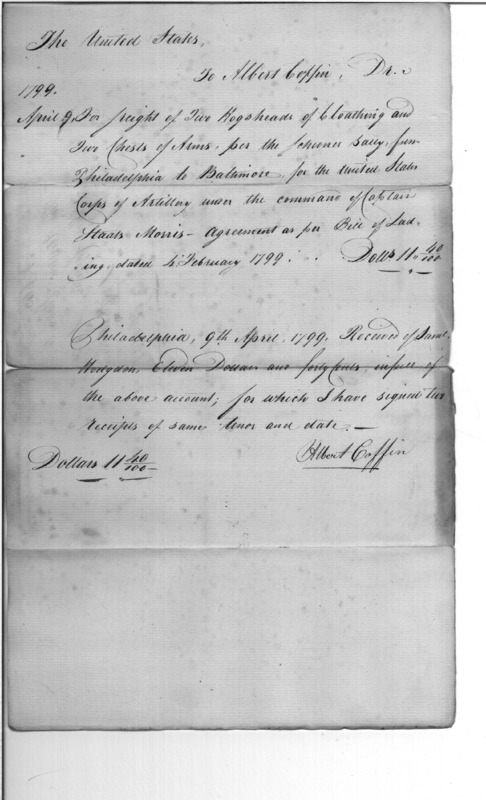 The United States,
To Albert Coffin, Dr.
1799.
April 9, For freight of Two Hogsheads of Cloathing and
Two Chests of Arms, per the schooner Sally, from
Philadelphia to Baltimore for the United States
Corps of Artillery under the command of Captain
Staats Morris - Agreement as per Bill of Lad-
ing, dated 4 February 1799. Dolls 11 40/100
Philadelphia, 9th April, 1799. Received of Saml
Hodgdon, Eleven Dollars and forty Cents, in full of
the above account; for which I have signed two
receipts of same tenor and date. —
Dollars 11 40/100 Albert Coffin